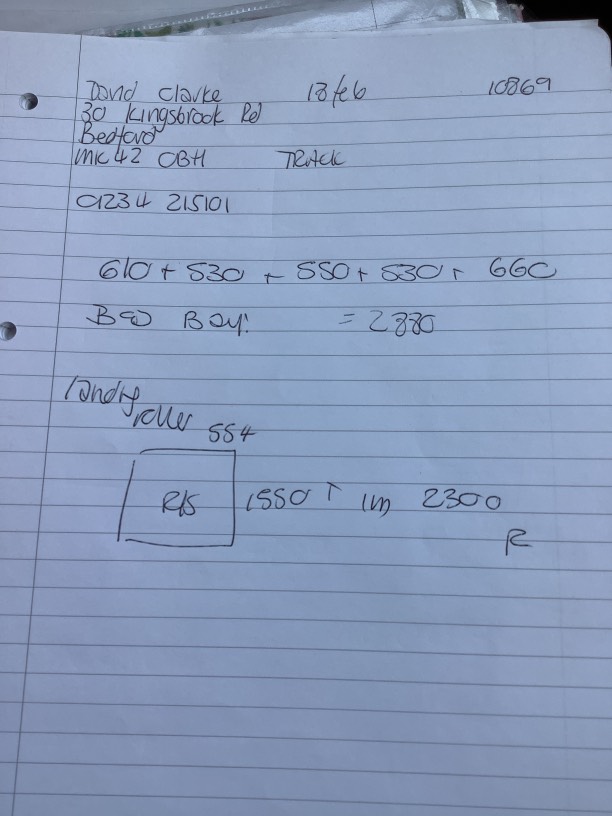 David Clarke 18 feb 10869
30 Kingsbrook Rd
Bedford
MK42 0BH
01234 215101
610 + 530 + 550 + 530 + 660
Bed Bay: = 2880
roller 554
R/S 1550 T 1M 2300
R